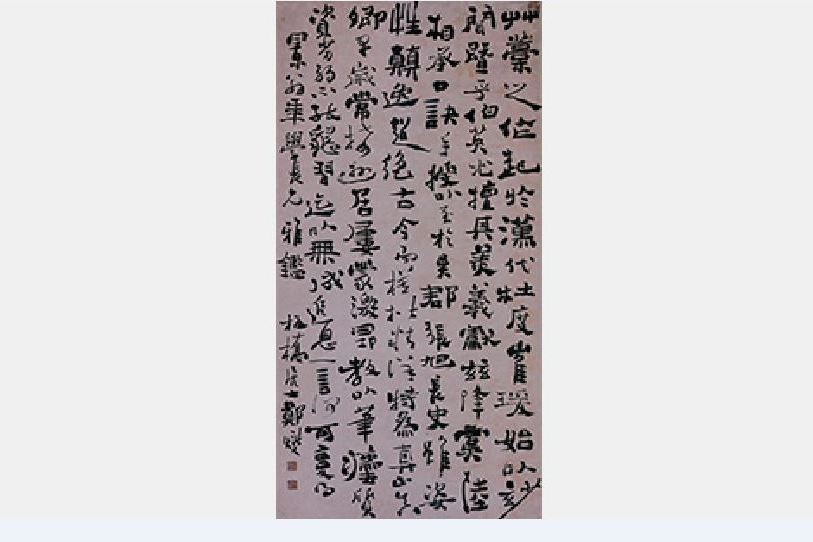 草稾之作起於漢代杜度崔瑗始以妙
聞暨乎伯英尤擅其美羲獻茲降虞陸
相承口訣手授以至於吳郡張旭長史雖姿
性顛逸超絕古今而模楷精詳特為真正真
卿早歲常接遊居屢蒙激昂教以筆灋質
資劣弱不能懇習迄以無成追思一言何可復得
翁年學長兄雅鑑 板橋居士鄭燮